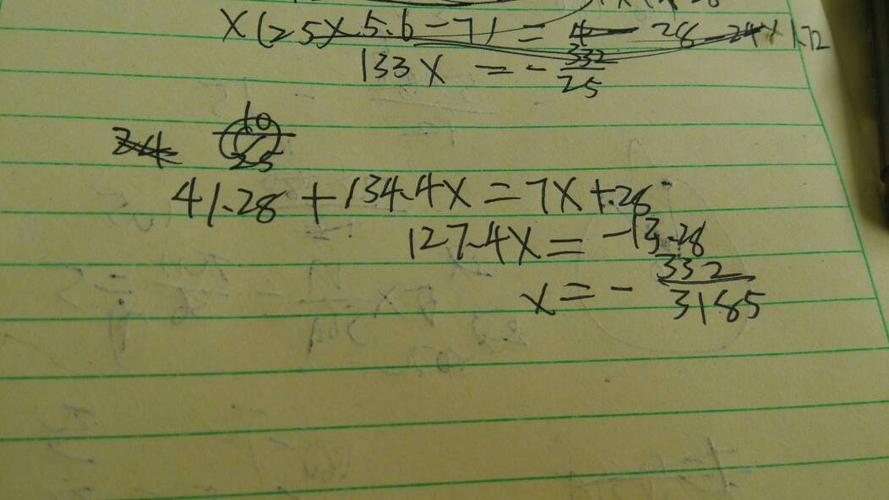 x(25×5.6-7)=4-28-24×1.72
133x=-332/25
24
10/25
41.28+134.4x=7x+28
127.4x=-13.28
x=-332/3185